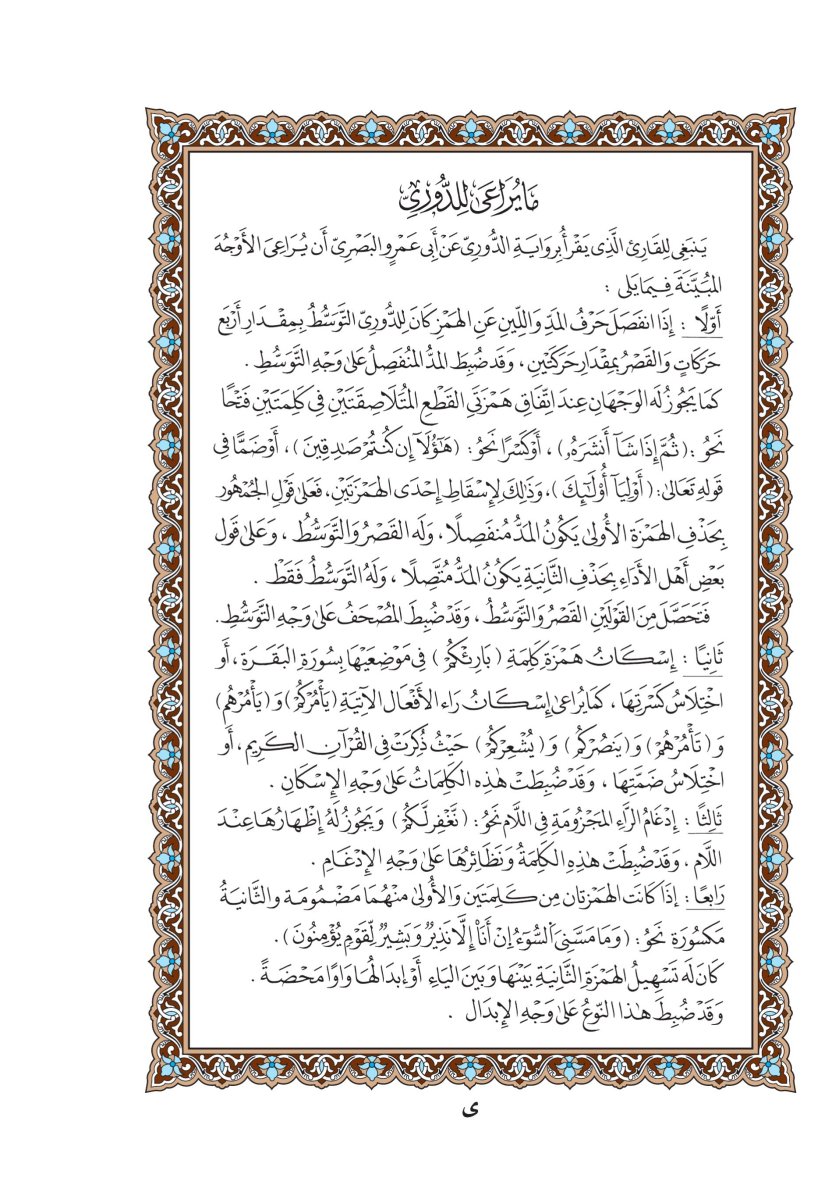 مَا يُرَاعَىٰ لِلدُّورِيِّ
يَنْبَغِى لِلْقَارِئِ الَّذِى يَقْرَأُ بِرِوَايَةِ الدُّورِيّ عَنْ أَبِى عَمْرٍو البَصْرِىّ أَن يُرَاعِىَ الأَوْجُهَ
المُبَيَّنَةَ فِيمَا يَلِى :
أَوَّلًا : إِذَا انفَصَلَ حَرْفُ المَدِّ وَاللِّينِ عَنِ الهَمْزِ كَانَ لِلدُّورِيّ التَّوَسُّطُ بِمِقْدَارِ أَرْبَعِ
حَرَكَاتٍ وَالقَصْرُ بِمِقْدَارِ حَرَكَتَيْنِ ، وَقَدْ ضُبِطَ المَدُّ المُنفَصِلُ عَلَىٰ وَجْهِ التَّوَسُّطِ .
كَمَا يَجُوزُ لَهُ الوَجْهَانِ عِندَ اتِّفَاقِ هَمْزَتَىِ القَطْعِ المُتَلَاصِقَتَيْنِ فِى كَلِمَتَيْنِ فَتْحًا
نَحْوُ : (ثُمَّ إِذَا شَآ أَنشَرَهُۥ) ، أَوْ كَسْرًا نَحْوُ : (هَٰٓؤُلَآ إِن كُنتُمْ صَٰدِقِينَ) ، أَوْ ضَمًّا فِى
قَولِهِ تَعَالَىٰ : (أَوْلِيَآ أُوْلَٰٓئِكَ) ، وَذَٰلِكَ لِإِسْقَاطِ إِحْدَى الهَمْزَتَيْنِ ، فَعَلَىٰ قَوْلِ الجُمْهُورِ
بِحَذْفِ الهَمْزَةِ الأُولَىٰ يَكُونُ المَدُّ مُنفَصِلًا ، وَلَه القَصْرُ وَالتَّوَسُّطُ ، وَعَلَىٰ قَوْلِ
بَعْضِ أَهْلِ الأَدَاءِ بِحَذْفِ الثَّانِيَةِ يَكُونُ المَدُّ مُتَّصِلًا ، وَلَهُ التَّوَسُّطُ فَقَطْ .
فَتَحَصَّلَ مِنَ القَوْلَيْنِ القَصْرُ وَالتَّوَسُّطُ ، وَقَدْ ضُبِطَ المُصْحَفُ عَلَىٰ وَجْهِ التَّوَسُّطِ .
ثَانِيًا : إِسْكَانُ هَمْزَةِ كَلِمَةِ (بَارِئْكُمْ) فِى مَوْضِعَيْهَا بِسُورَةِ البَقَرَةِ ، أَو
اخْتِلَاسُ كَسْرَتِهَا ، كَمَا يُرَاعَىٰ إِسْكَانُ رَاءِ الأَفْعَالِ الآتِيَةِ (يَأْمُرْكُمْ) وَ (يَأْمُرْهُم)
وَ (تَأْمُرْهُمْ) وَ (يَنصُرْكُم) وَ (يُشْعِرْكُمْ) حَيْثُ ذُكِرَتْ فِى القُرْآنِ الكَرِيمِ ، أَو
اخْتِلَاسُ ضَمَّتِهَا ، وَقَدْ ضُبِطَتْ هَٰذِهِ الكَلِمَاتُ عَلَىٰ وَجْهِ الإِسْكَانِ .
ثَالِثًا : إِدْغَامُ الرَّاءِ المَجْزُومَةِ فِى اللَّامِ نَحْوُ : (نَّغْفِر لَّكُمْ) وَيَجُوزُ لَهُ إِظْهَارُهَا عِنْدَ
اللَّامِ ، وَقَدْ ضُبِطَتْ هَٰذِهِ الكَلِمَةُ وَنَظَائِرُهَا عَلَىٰ وَجْهِ الإِدْغَامِ .
رَابِعًا : إِذَا كَانَت الهَمْزَتَانِ مِن كَلِمَتَيْنِ وَالأُولَىٰ مِنْهُمَا مَضْمُومَة وَالثَّانِيَةُ
مَكْسُورَة نَحْوُ : (وَمَا مَسَّنِىَ اَ۬لسُّوٓءُ اِنْ أَنَا۠ إِلَّا نَذِيرٌ وَبَشِيرٌ لِّقَوْمٍ يُؤْمِنُونَ) .
كَانَ لَه تَسْهِيلُ الهَمْزَةِ الثَّانِيَةِ بَيْنَهَا وَبَيْنَ اليَاءِ أَوْ إِبدَالُهَا وَاوًا مَحْضَةً .
وَقَدْ ضُبِطَ هَٰذَا النَّوْعُ عَلَىٰ وَجْهِ الإِبدَالِ .
ى